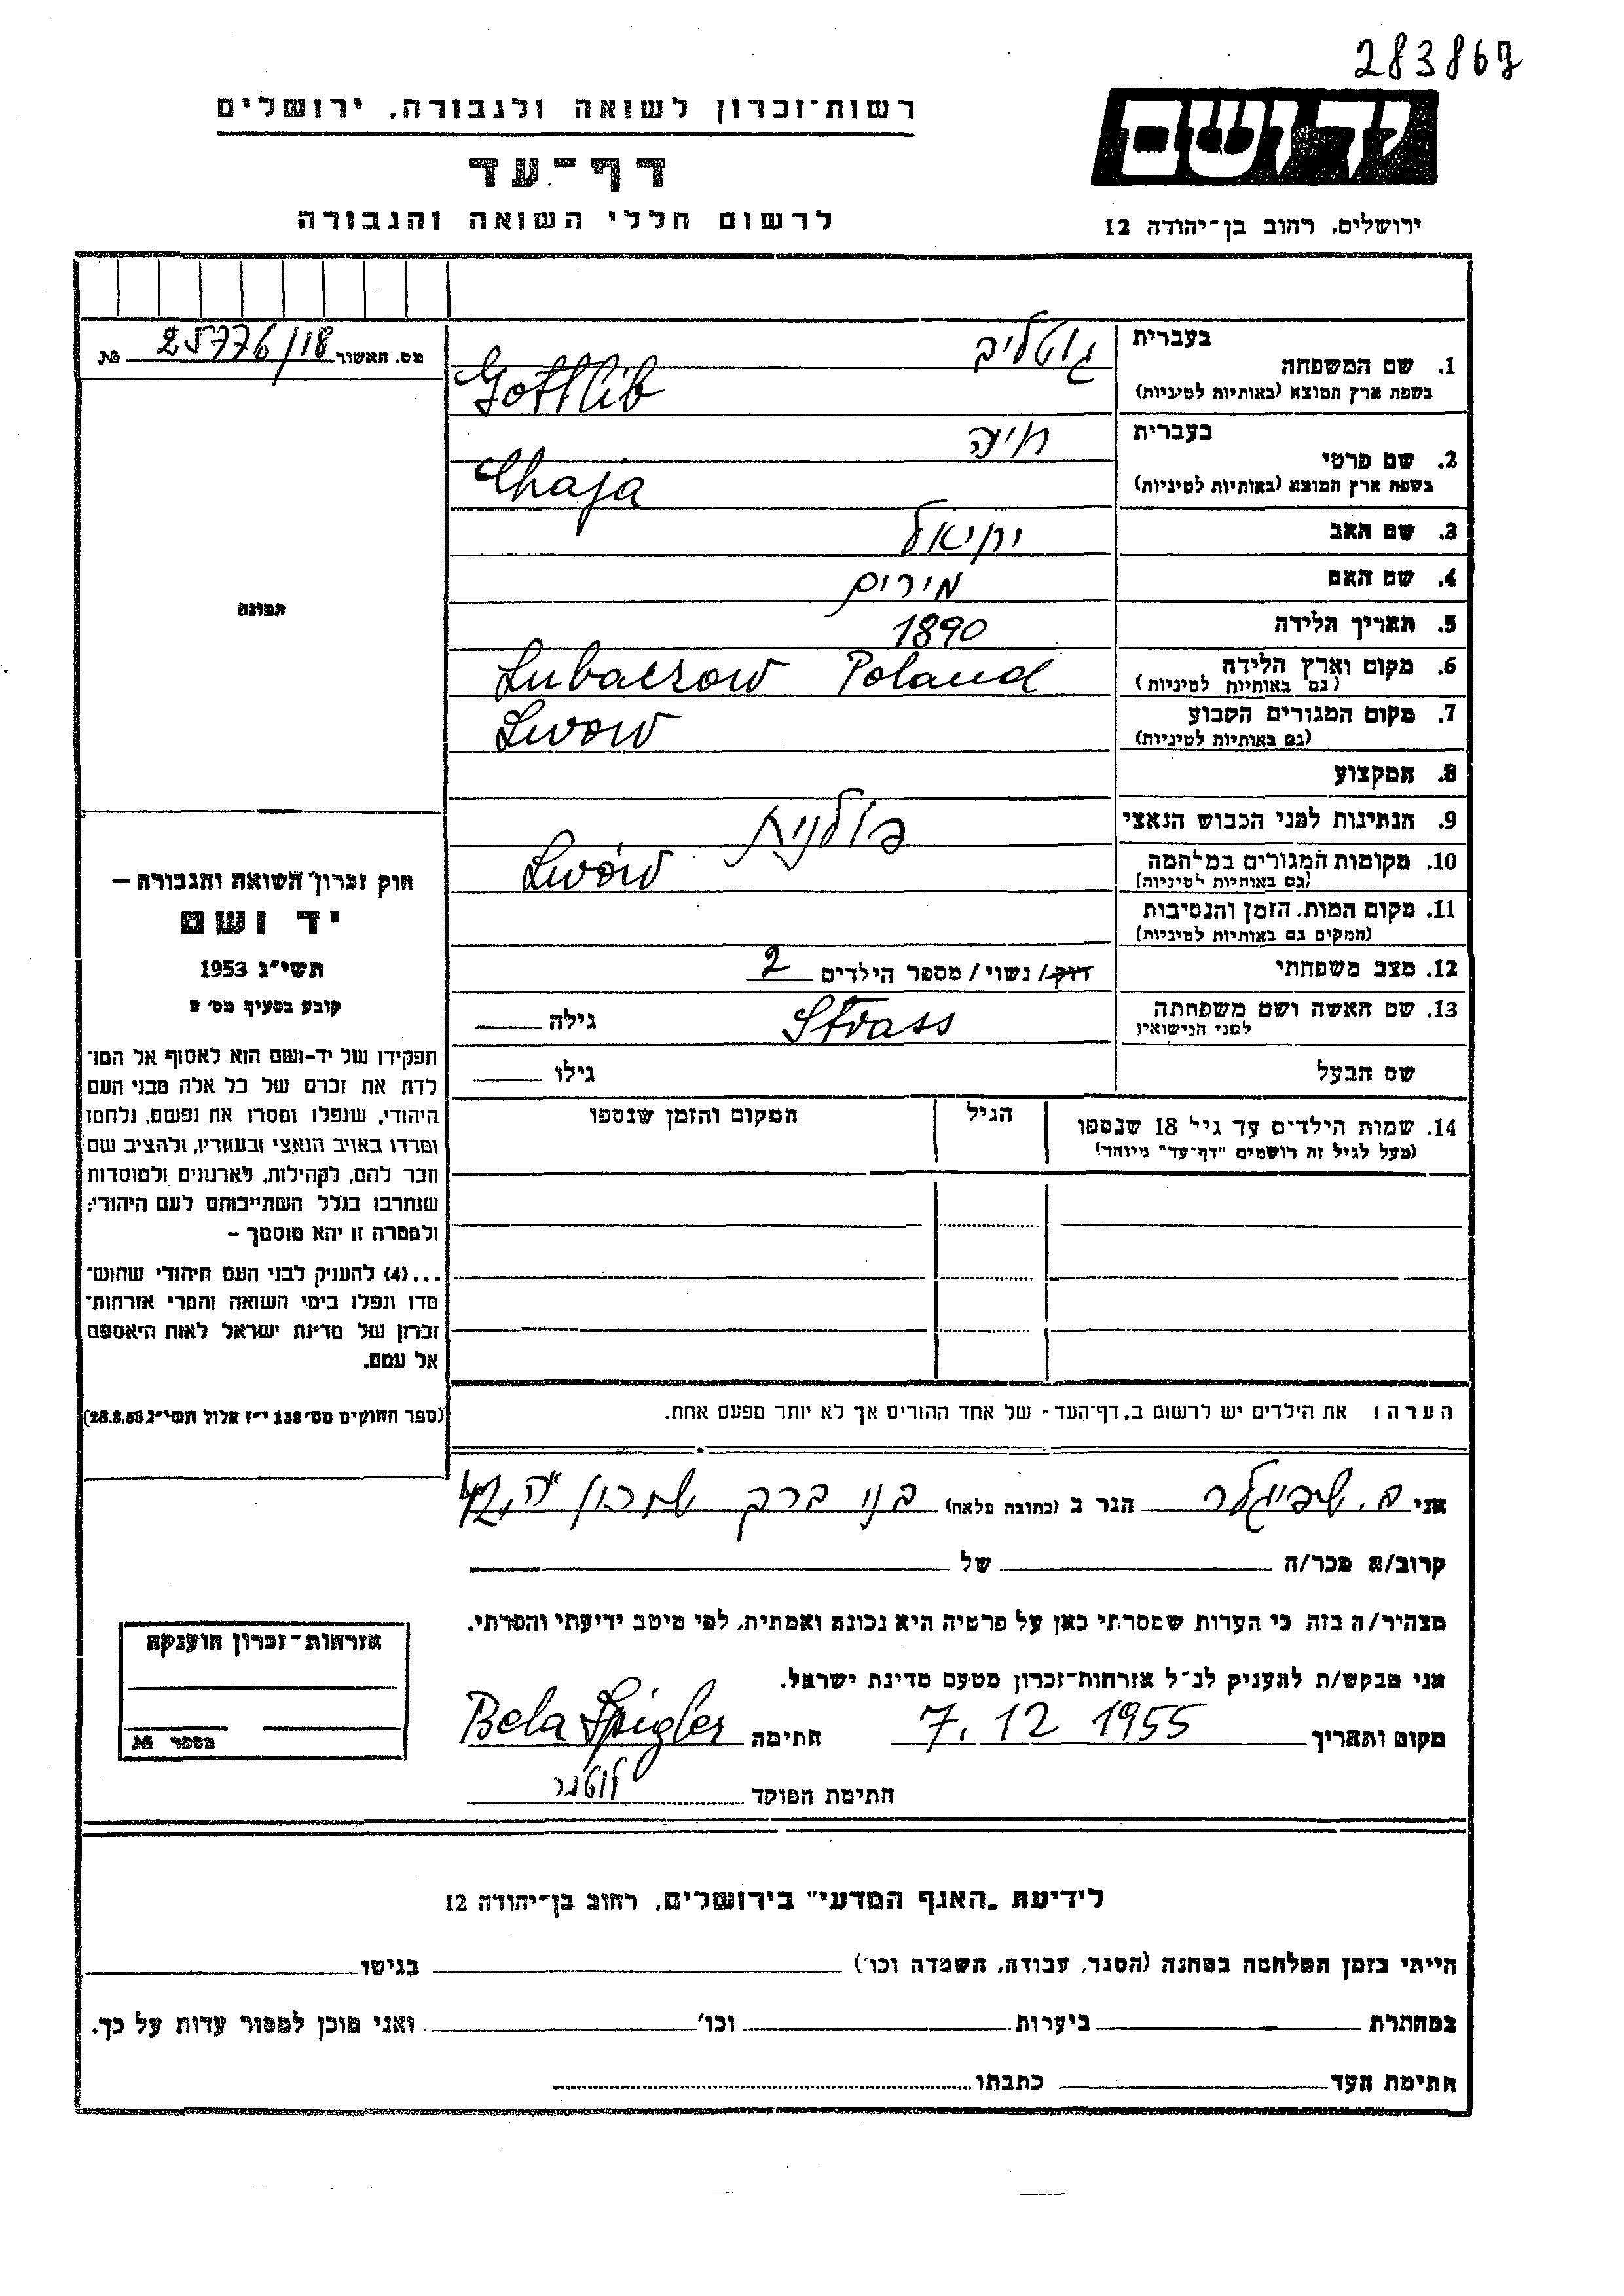 283867
רשות־זכרון לשואה ולגבורה, ירושלים
יד ושם
דף־עד
לרשום חללי השואה והגבורה
ירושלים, רחוב בן־יהודה 12
מס. האשור 25776/18 №
בעברית גוטליב
1. שם המשפחה
בשפת ארץ המוצא (באותיות לטיניות) Gottlib
בעברית חיה
2. שם פרטי
בשפת ארץ המוצא (באותיות לטיניות) Chaja
3. שם האב יחיאל
4. שם האם מירים
5. תאריך הלידה 1890
6. מקום וארץ הלידה Lubaczow Poland
(גם באותיות לטיניות)
7. מקום המגורים הקבוע Lwow
(גם באותיות לטיניות)
8. המקצוע
9. הנתינות לפני הכבוש הנאצי פולנית
10. מקומות המגורים במלחמה Lwów
(גם באותיות לטיניות)
11. מקום המות, הזמן והנסיבות
(המקום גם באותיות לטיניות)
12. מצב משפחתי רווק/ נשוי/ מספר הילדים 2
13. שם האשה ושם משפחתה Strass גילה
לפני הנישואין
שם הבעל גילו
14. שמות הילדים עד גיל 18 שנספו הגיל המקום והזמן שנספו
(מעל לגיל זה רושמים "דף־עד" מיוחד)
תמונה
חוק זכרון השואה והגבורה –
יד ושם
תשי"ג 1953
קובע בסעיף מס' 2
תפקידו של יד-ושם הוא לאסוף אל המו־
לדת את זכרם של כל אלה מבני העם
היהודי, שנפלו ומסרו את נפשם, נלחמו
ומרדו באויב הנאצי ובעוזריו, ולהציב שם
וזכר להם, לקהילות, לארגונים ולמוסדות
שנחרבו בגלל השתייכותם לעם היהודי;
ולמטרה זו יהא מוסמך –
...(4) להעניק לבני העם היהודי שהוש־
מדו ונפלו בימי השואה והמרי אזרחות־
זכרון של מדינת ישראל לאות היאספם
אל עמם.
(ספר החוקים מס' 132 י"ז אלול תשי"ג 28.8.53)
הערה: את הילדים יש לרשום ב„דף־העד" של אחד ההורים אך לא יותר מפעם אחת.
אני ב. שפיגלר הגר ב (כתובת מלאה) בני ברק שכון ה', 42
קרוב/ה מכר/ה של
מצהיר/ה בזה כי העדות שמסרתי כאן על פרטיה היא נכונה ואמתית, לפי מיטב ידיעתי והכרתי.
אני מבקש/ת להעניק לנ"ל אזרחות־זכרון מטעם מדינת ישראל.
מקום ותאריך 7. 12 1955 חתימה Bela Spigler
חתימת הפוקד
אזרחות־זכרון הוענקה
מספר №
לידיעת „האגף המדעי" בירושלים, רחוב בן־יהודה 12
הייתי בזמן המלחמה במחנה (הסגר, עבודה, השמדה וכו') בגיטו
במחתרת ביערות וכו' ואני מוכן למסור עדות על כך.
חתימת העד כתבתו